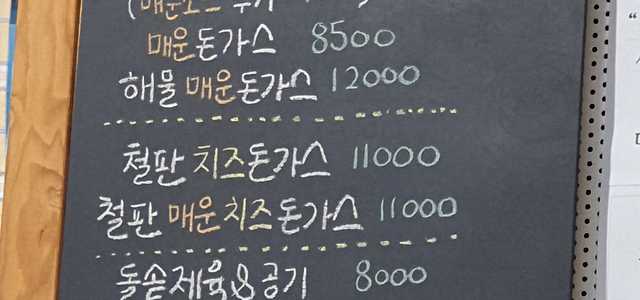 (매운소스 추가
매운돈가스 8500
해물 매운돈가스 12000
철판 치즈돈가스 11000
철판 매운치즈돈가스 11000
돌솥제육&공기 8000